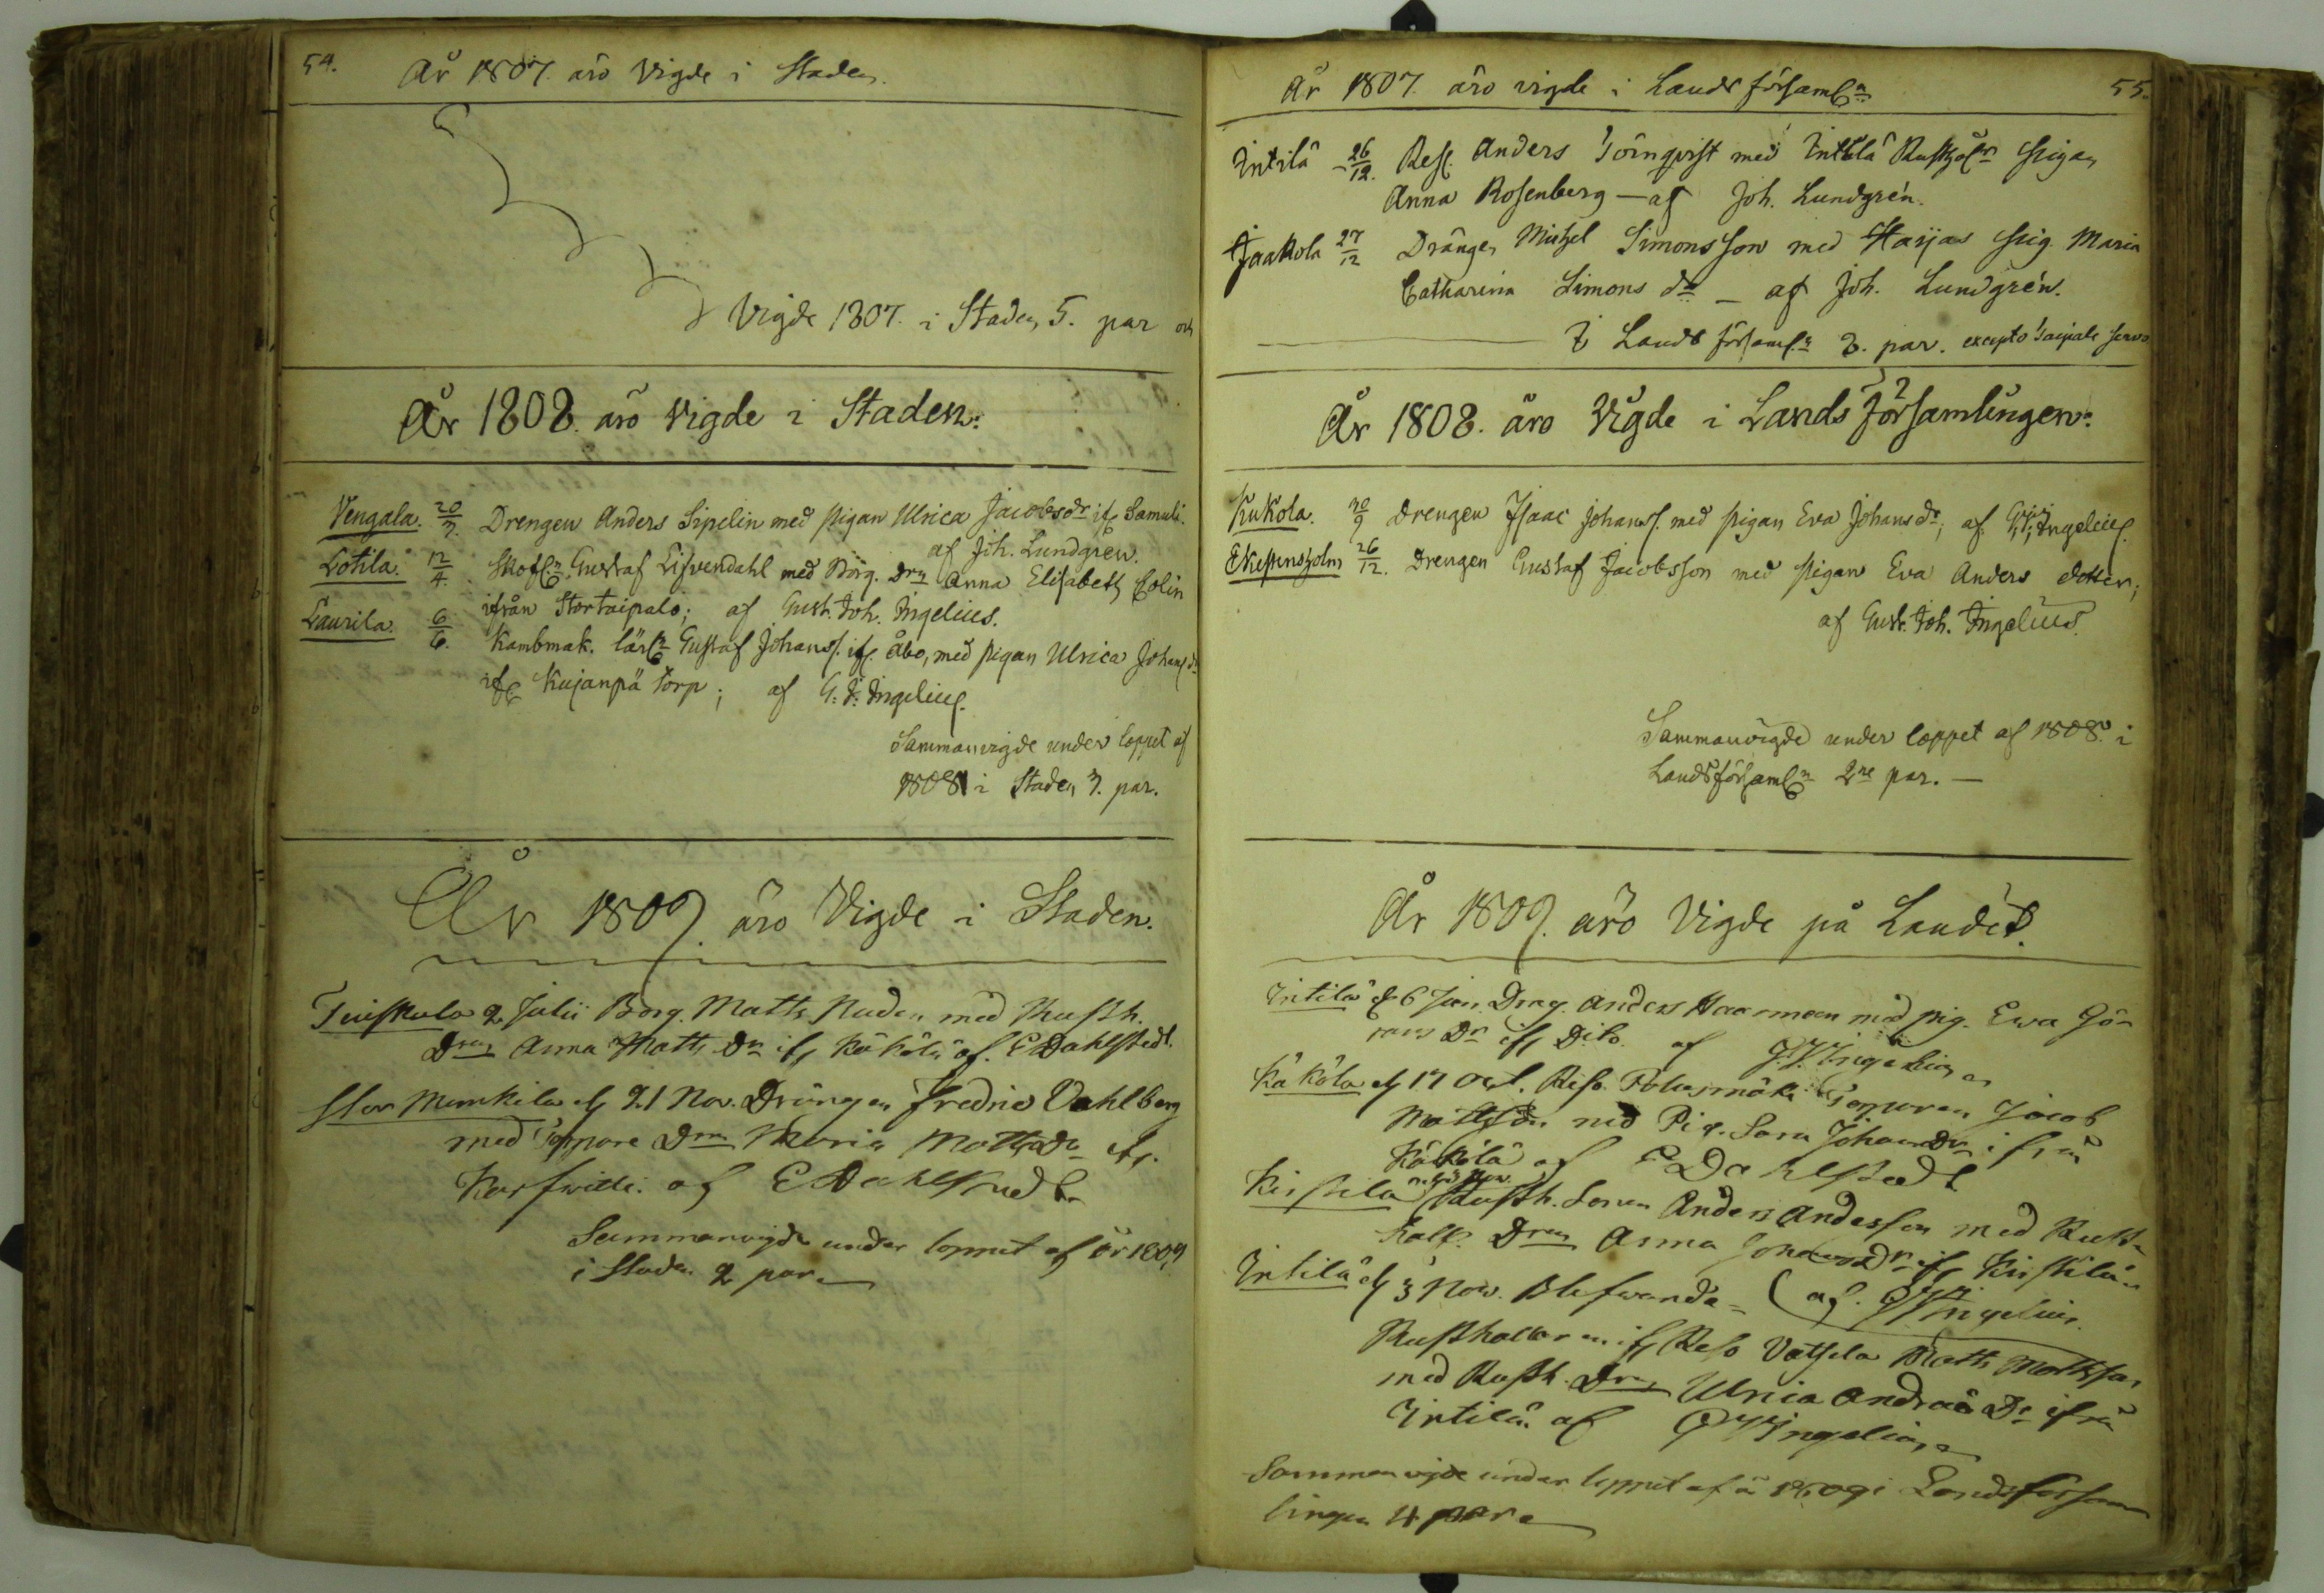 54.
År 1807. äro Vigde i Staden.
Vigde 1807. i Staden 5. par och
År 1808. äro Vigde i Staden:
Vengala. 20/3. Drengen Anders Sipelin med pigan Ulrica Jacobsdr if. Samuli.
af Joh. Lundgrén.
Lotila. 12/4. Gustaf med Borg. Drn Anna Elisabeth Colin
ifrån Stortaipalo; af Gust. Joh. Ingelius.
Laurila. 6/6. Kambmak. lärl. Gustaf Johanss. if. Åbo, med pigan Ulrica Johansdr
if Kujanpä torp; af G. J. Ingelius.
Sammanvigde under loppet af
1808 i Staden 3. par.
År 1809. äro Vigde i Staden.
2 Julii Borg. Matts Ruden med Rusth.
Drn Anna Matts Dr if Käkölä af. E Dahlstedt.
Stor Munkila d 21 Nov. Drängen Fredric Dahlberg
med Torpare Drn Maria Mattsdr if.
af E Dahlstedt
Sammanvigde under loppet af år 1809
i Staden 2 par.
År 1807. äro vigde i Lands församln
55.
Intilä 26/12. Res. Anders Törnqvist med Intilä Rusthåls pigan
Anna Rosenberg — af Joh. Lundgrén.
Jaakola 27/12 Drängen Michel Simonsson med Harjas pig. Maria
Catharina Simons dr — af Joh. Lundgrén.
I Lands församl.n par. excepto
År 1808. äro Vigde i Lands Församlingen:
Kukola. 30/9 Drengen Isaac Johanss. med pigan Eva Johansdr; af G. J. Ingelius.
Ekepensholm 26/12. Drengen Gustaf Jacobsson med pigan Eva Anders dotter;
af Gust. Joh. Ingelius.
Sammanvigde under loppet af 1808. i
Landsförsamln 2ne par. —
År 1809. äro Vigde på Landet.
Intilä d 6 Jan. Drag. Anders Haarman med pig. Ewa Gö-
rans Dr if Dito. af G.J. Ingelius
Käkölä d 17 Oct. Reso Torparen Jacob
Mattsson med Pig. Sara Johans Dr ifrån
Käkölä af E Dahlstedt
Kirstilä Rusth. Sonen Anders Andersson med Rust-
håll. Drn Anna Johans Dr if Kirstilä.
Intilä d 3 Nov. Blifwande (af. GJ Ingelius.
Rusthållaren if Reso Vatsela Matts Mattsson
med Rusth. Drn Ulrica Andreæ Dr ifrån
Intilä. af GJ Ingelius
Sammanvigde under loppet af år 1809 i Landsförsam
lingen 4 par.